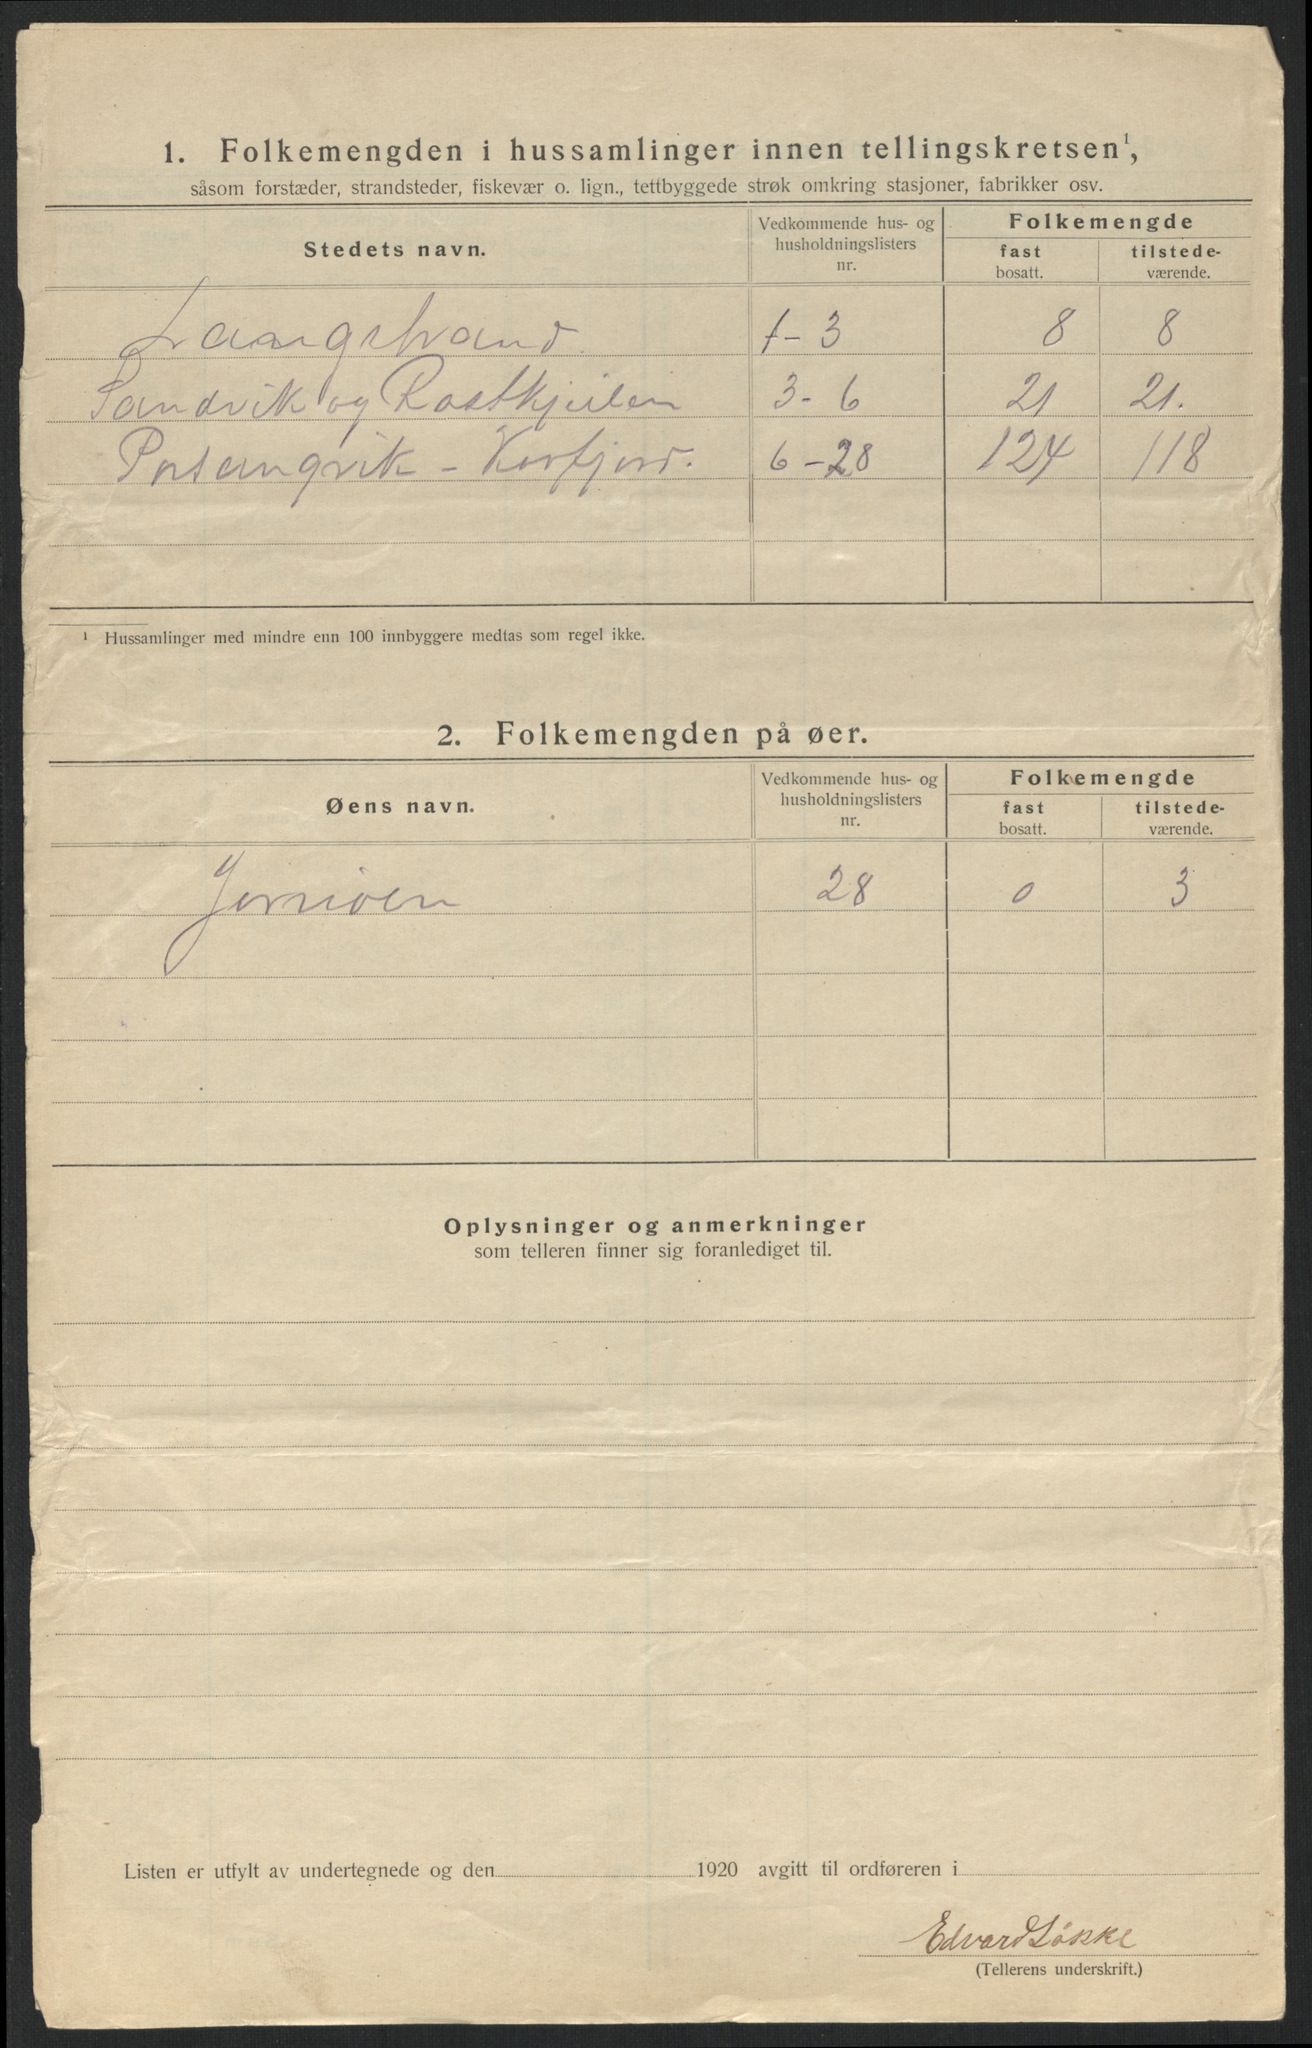 1. Folkemengden i hussamlinger innen tellingskretsen¹,
såsom forstæder, strandsteder, fiskevær o. lign., tettbyggede strøk omkring stasjoner, fabrikker osv.
Stedets navn. Vedkommende hus- og husholdningslisters nr. Folkemengde fast bosatt. tilstede-værende.
Langstrand 1-3 8 8
Sandvik og Rastkjeilen 3-6 21 21.
Porsangvik - Korfjord. 6-28 124 118
¹ Hussamlinger med mindre enn 100 innbyggere medtas som regel ikke.
2. Folkemengden på øer.
Øens navn. Vedkommende hus- og husholdningslisters nr. Folkemengde fast bosatt. tilstede-værende.
Jernøen 28 0 3
Oplysninger og anmerkninger
som telleren finner sig foranlediget til.
Listen er utfylt av undertegnede og den 1920 avgitt til ordføreren i
Edvard Løkke
(Tellerens underskrift.)